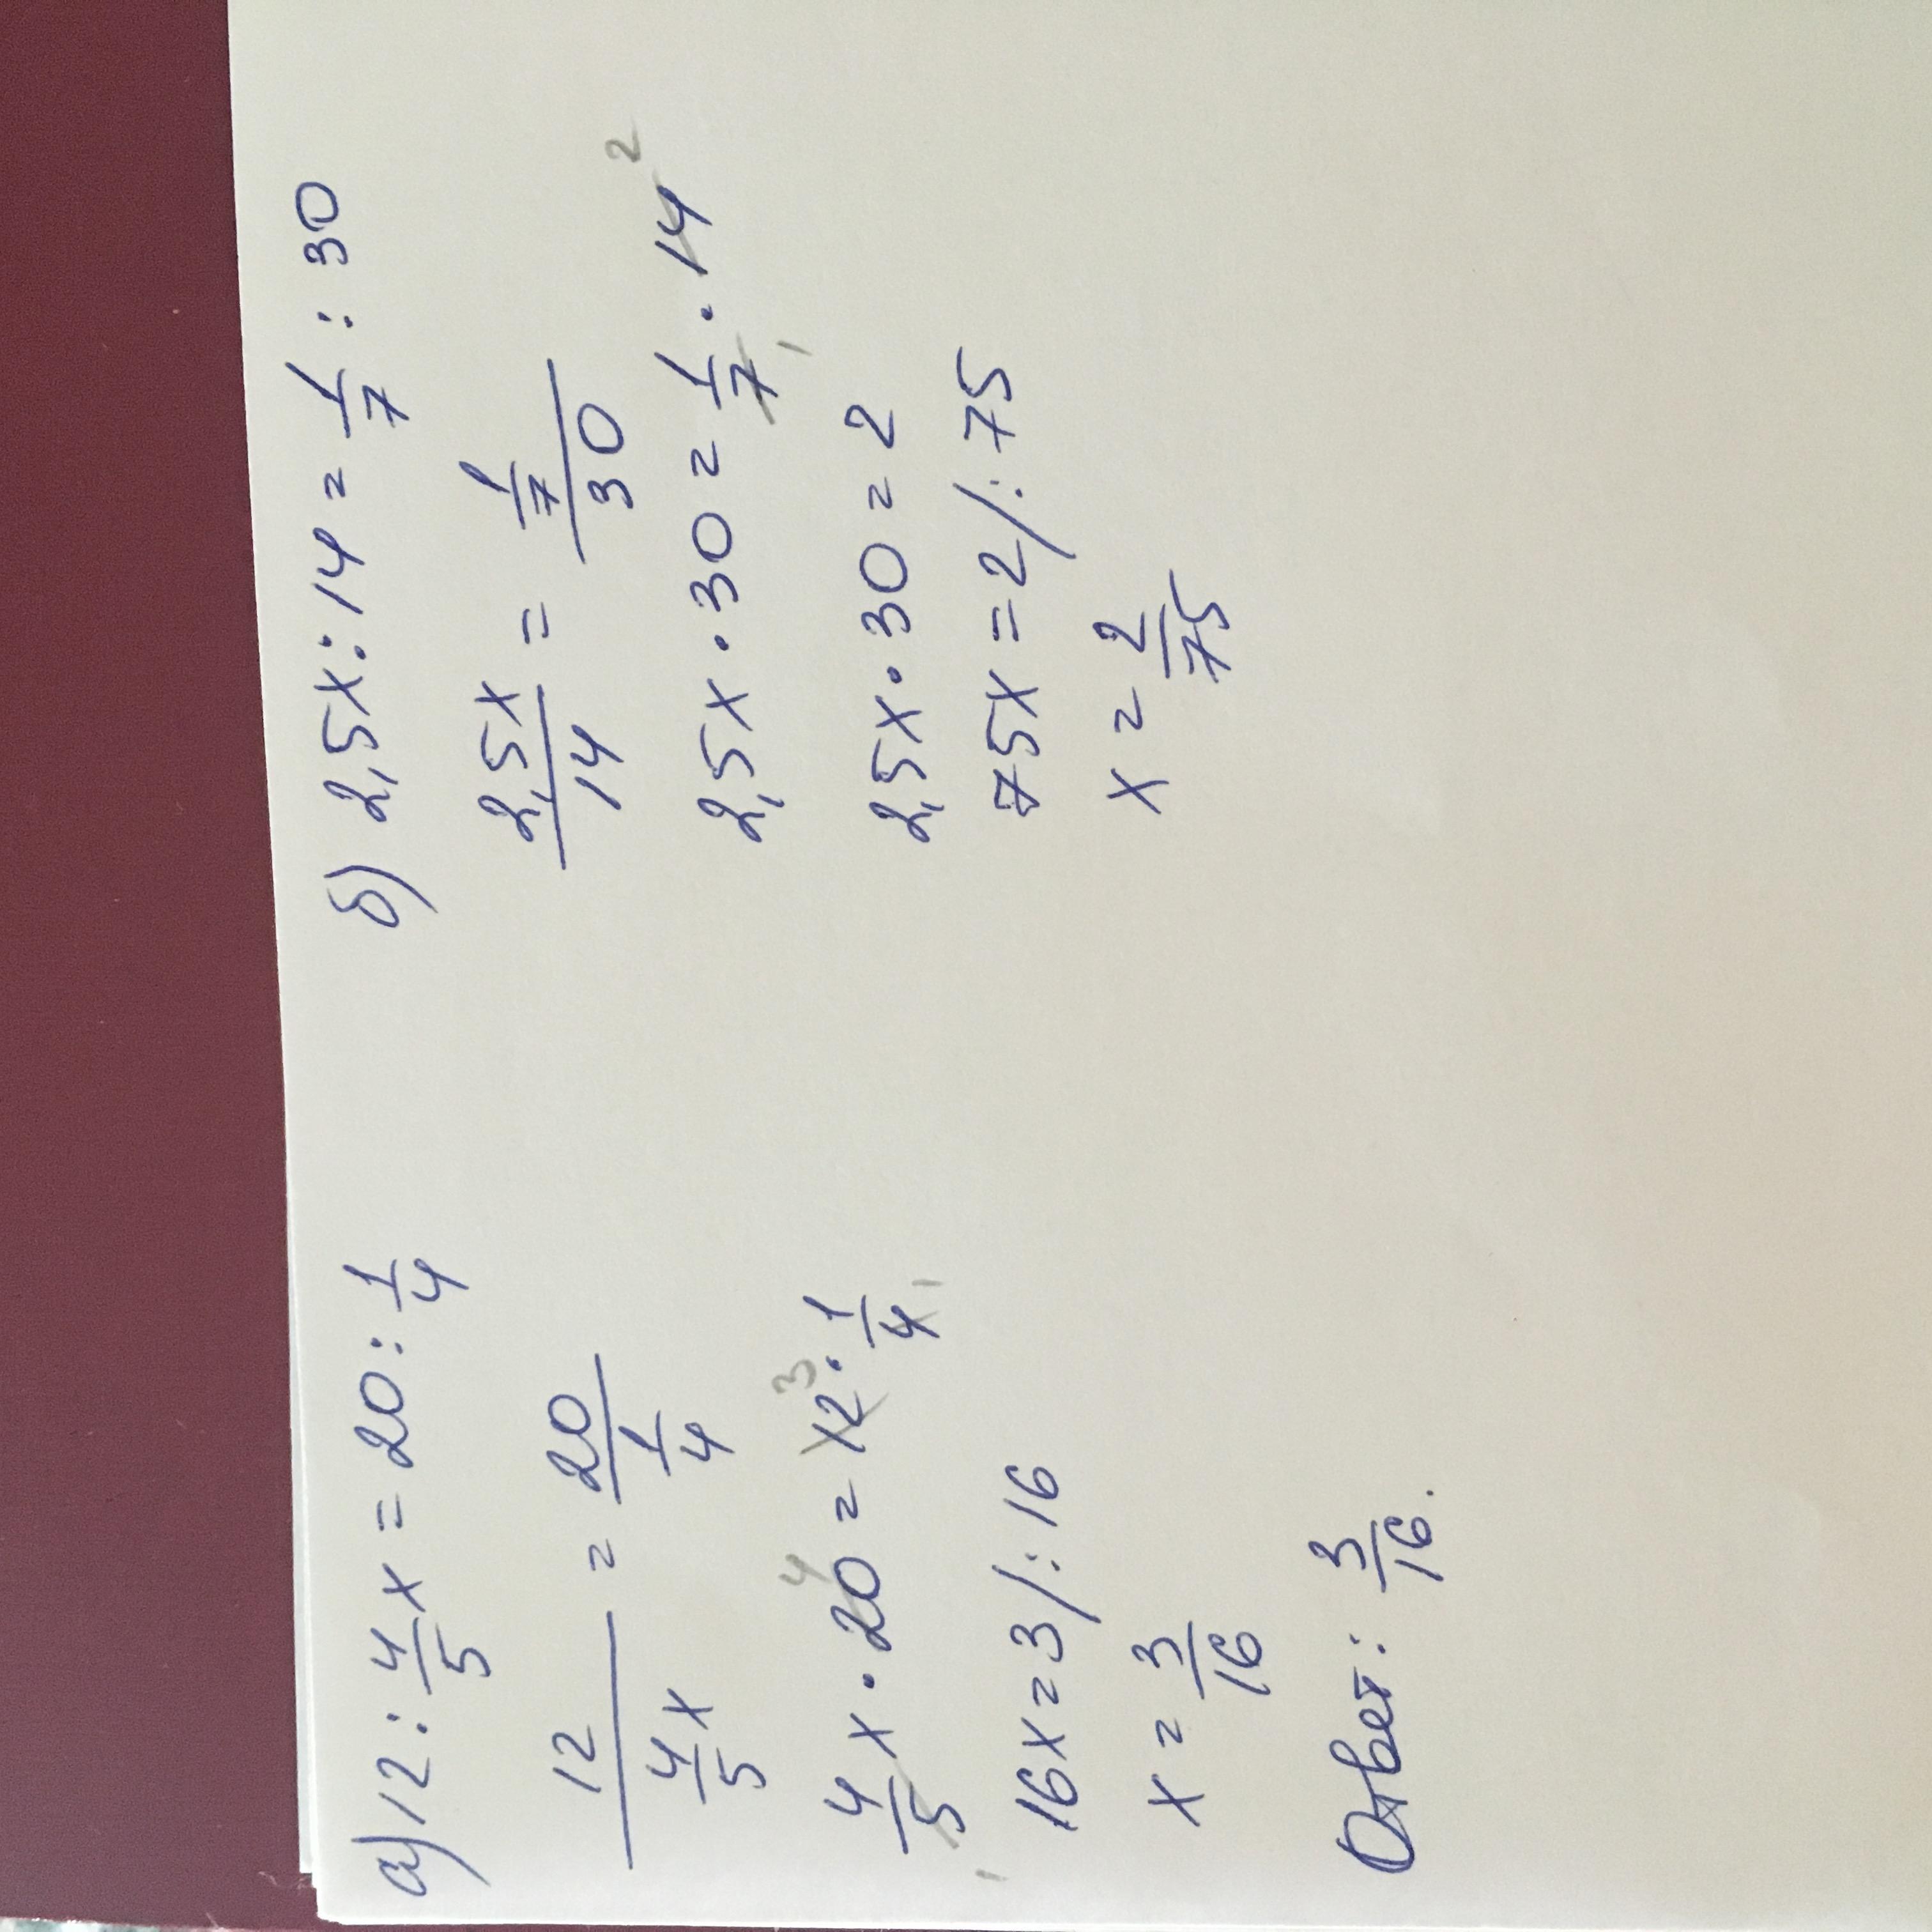 а) 12 : 4/5 x = 20 : 1/4
12 / (4/5 x) = 20 / (1/4)
4/5 x · 20 = 12 · 1/4
1 4 3 1
16x = 3 /: 16
x = 3/16
Ответ: 3/16.
б) 2,5x : 14 = 1/7 : 30
2,5x / 14 = (1/7) / 30
2,5x · 30 = 1/7 · 14
1 2
2,5x · 30 = 2
75x = 2 /: 75
x = 2/75